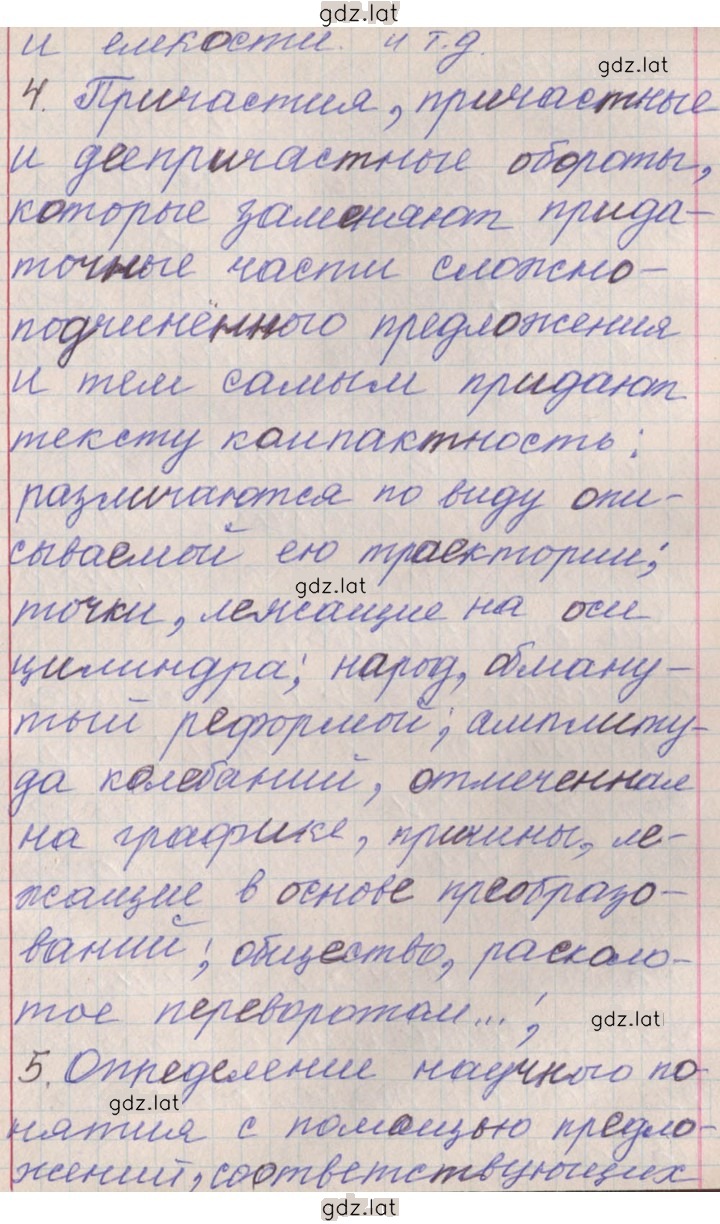 gdz.lat
и емкости. и т.д.
gdz.lat
4. Причастия, причастные
и деепричастные обороты,
которые заменяют прида-
точные части сложно-
подчинённого предложения
и тем самым придают
тексту компактность:
различаются по виду опи-
сываемой ею траектории;
gdz.lat
точки, лежащие на оси
цилиндра; народ, обману-
тый реформой; амплиту-
да колебаний, отмеченная
на графике, причины, ле-
жащие в основе преобразо-
ваний; общество, расколо-
тое переворотом...;
gdz.lat
5. Определение научного по-
gdz.lat
нятия с помощью предло-
жений, соответствующих
gdz.lat